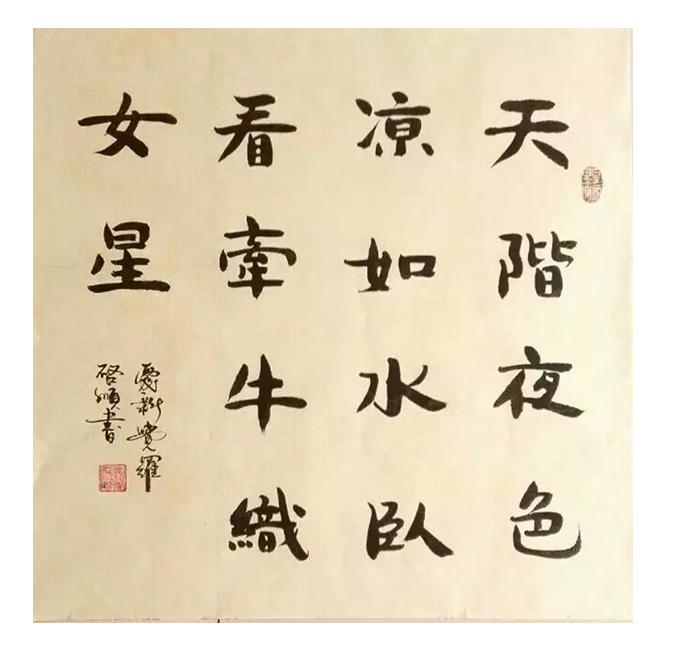 天階夜色
凉如水臥
看牽牛織
女星
愛新覺羅
啓順書